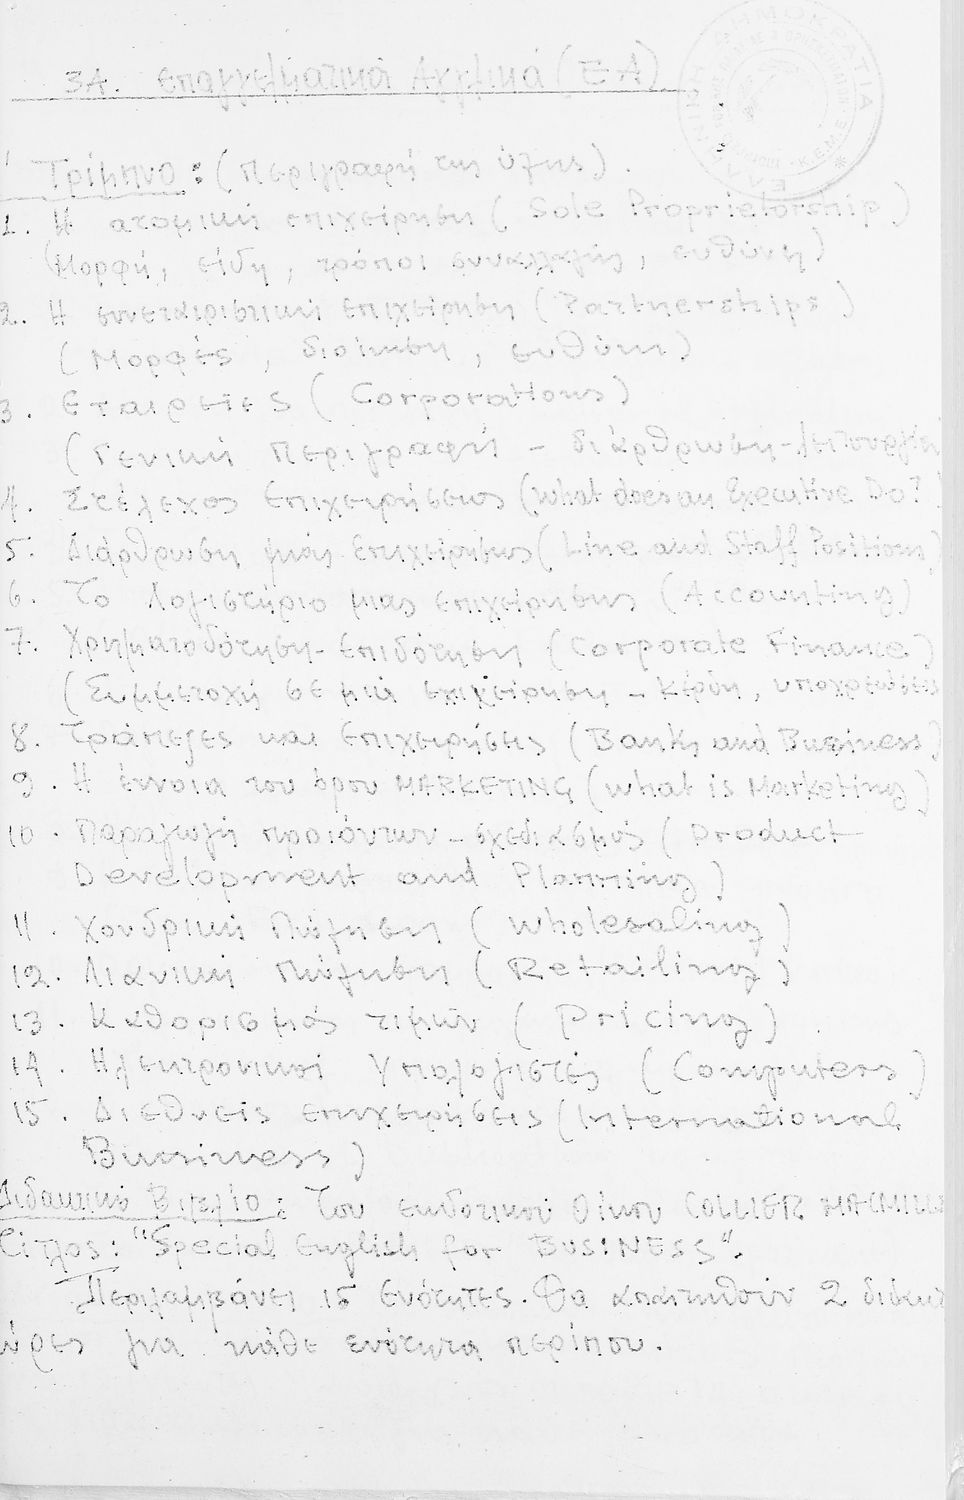 34. Επαγγελματικά Αγγλικά (ΕΑ)
ΕΛΛΗΝΙΚΗ ΔΗΜΟΚΡΑΤΙΑ
Κ.Ε.Μ.Ε.
Τρίμηνο : (Περιγραφή της ύλης).
1. Η ατομική επιχείρηση (Sole Proprietorship)
(Μορφή, είδη, τρόποι συναλλαγής, ευθύνη)
2. Η συνεταιριστική επιχείρηση (Partnerships)
(Μορφές, διοίκηση, ευθύνη)
3. Εταιρείες (Corporations)
(Γενική Περιγραφή - διάρθρωση - λειτουργία
4. Στέλεχος Επιχειρήσεως (What does an Executive Do?
5. Διάρθρωση μιάς Επιχειρήσεως (Line and Staff Positions)
6. Το Λογιστήριο μιας επιχείρησης (Accounting)
7. Χρηματοδότηση - Επιδότηση (Corporate Finance)
(Συμμετοχή σε μιά επιχείρηση - Κέρδη, υποχρεώσεις
8. Τράπεζες και Επιχειρήσεις (Banks and Business)
9. Η έννοια του όρου MARKETING (What is Marketing)
10. Παραγωγή προιόντων - σχεδιασμός (Product
Development and Planning)
11. Χονδρική Πώληση (Wholesaling)
12. Λιανική Πώληση (Retailing)
13. Καθορισμός τιμών (Pricing).
14. Ηλεκτρονικοί Υπολογιστές (Computers)
15. Διεθνείς επιχειρήσεις (International
Business)
Διδακτικό Βιβλίο : Του εκδοτικού Οίκου COLLIER MACMILLAN
Τίτλος : "Special English for BUSINESS".
Περιλαμβάνει 15 Ενότητες. Θα απαιτηθούν 2
ώρες για κάθε ενότητα περίπου.